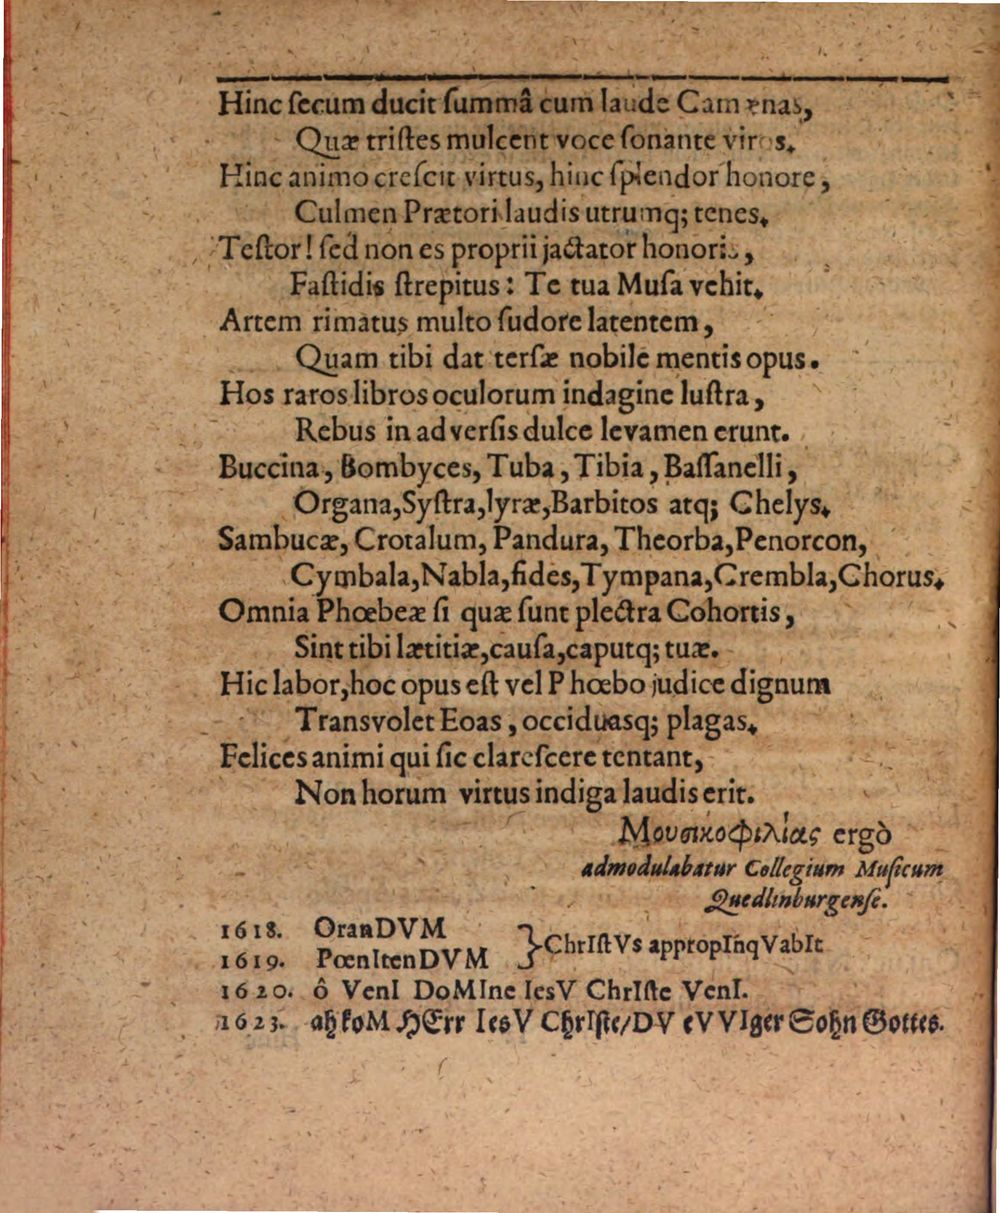 Hinc ſecum ducit ſummâ cum laude Camœnas,
Quæ triſtes mulcent voce ſonante viros.
Hinc animo creſcit virtus, hinc ſplendor honore,
Culmen Prætori laudis utrumq; tenes.
Teſtor! ſed non es proprii jactator honoris,
Faſtidis ſtrepitus: Te tua Muſa vehit.
Artem rimatus multo ſudore latentem,
Quam tibi dat terſæ nobile mentis opus.
Hos raros libros oculorum indagine luſtra,
Rebus in adverſis dulce levamen erunt.
Buccina, Bombyces, Tuba, Tibia, Baſſanelli,
Organa, Syſtra, lyræ, Barbitos atq; Chelys.
Sambucæ, Crotalum, Pandura, Theorba, Penorcon,
Cymbala, Nabla, fides, Tympana, Crembla, Chorus.
Omnia Phœbeæ ſi quæ ſunt plectra Cohortis,
Sint tibi lætitiæ, cauſa, caputq; tuæ.
Hic labor, hoc opus eſt vel Phœbo judice dignum
Transvolet Eoas, occiduasq; plagas.
Felices animi qui ſic clareſcere tentant,
Non horum virtus indiga laudis erit.
Μουσικοφιλίας ergò
admodulabatur Collegium Muſicum
Quedlinburgenſe.
1618. OranDVM
1619. PœnItenDVM } ChrIſtVs appropInqVabIt
1620. ô VenI DoMIne IesV ChrIſte VenI.
1623. ah koM HErr IesV ChrIſte/ DV eVVIger Sohn Gottes.